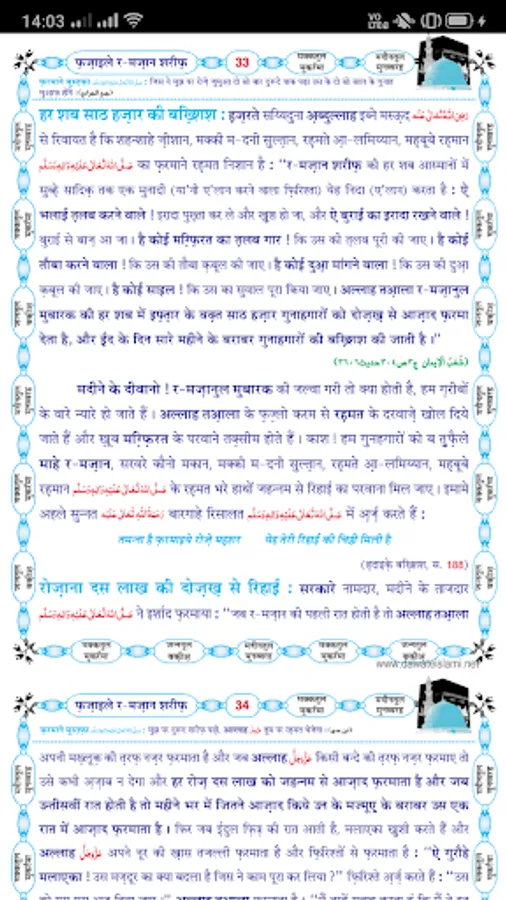 14:03
फ़ज़ाइले र-मज़ान शरीफ़ 33 मक्कतुल मुकर्रमा मदीनतुल मुनव्वरह
हर शब साठ हज़ार की बख़्शिश : हज़रते सय्यिदुना अब्दुल्लाह इब्ने मस्ऊद رَضِىَ اللّٰهُ تَعَالٰى عَنْه
से रिवायत है कि शहन्शाहे ज़ीशान, मक्की म-दनी सुल्तान, रहमते आ़-लमिय्यान, महबूबे रहमान
صَلَّى اللّٰهُ تَعَالٰى عَلَيْهِ وَاٰلِهٖ وَسَلَّم का फ़रमाने रहमत निशान है : “र-मज़ान शरीफ़ की हर शब आस्मानों में
सुब्हे सादिक़ तक एक मुनादी (या'नी ए'लान करने वाला फ़िरिश्ता) येह निदा (ए'लान) करता है : ऐ
भलाई त़लब करने वाले ! इरादा पुख़्ता कर ले और खुश हो जा, और ऐ बुराई का इरादा रखने वाले !
बुराई से बाज़ आ जा । है कोई मग़्फ़िरत का त़लब गार ! कि उस की त़लब पूरी की जाए । है कोई
तौबा करने वाला ! कि उस की तौबा क़बूल की जाए । है कोई दुआ़ मांगने वाला ! कि उस की दुआ़
क़बूल की जाए । है कोई साइल ! कि उस का सुवाल पूरा किया जाए । अल्लाह तआ़ला र-मज़ानुल
मुबारक की हर शब में इफ़्त़ार के वक़्त साठ हज़ार गुनाहगारों को दोज़ख़ से आज़ाद फ़रमा
देता है, और ईद के दिन सारे महीने के बराबर गुनाहगारों की बख़्शिश की जाती है ।”
(شُعَبُ الْاِيمان ج٣ ص٣٠٤ حديث ٣٦٠٦)
मदीने के दीवानो ! र-मज़ानुल मुबारक की जल्वा गरी तो क्या होती है, हम ग़रीबों
के वारे न्यारे हो जाते हैं । अल्लाह तआ़ला के फ़ज़्लो करम से रहमत के दरवाज़े खोल दिये
जाते हैं और ख़ूब मग़्फ़िरत के परवाने तक़्सीम होते हैं । काश ! हम गुनहगारों को ब तुफ़ैले
माहे र-मज़ान, सरवरे कौनो मकान, मक्की म-दनी सुल्तान, रहमते आ़-लमिय्यान, महबूबे
रहमान صَلَّى اللّٰهُ تَعَالٰى عَلَيْهِ وَاٰلِهٖ وَسَلَّم के रहमत भरे हाथों जहन्नम से रिहाई का परवाना मिल जाए । इमामे
अहले सुन्नत رَحْمَةُ اللّٰهِ تَعَالٰى عَلَيْه बारगाहे रिसालत صَلَّى اللّٰهُ تَعَالٰى عَلَيْهِ وَاٰلِهٖ وَسَلَّم में अ़र्ज़ करते हैं :
तमन्ना है फ़रमाइये रोज़े महशर येह तेरी रिहाई की चिठ्ठी मिली है
(ह़दाइक़े बख़्शिश, स. 188)
रोज़ाना दस लाख की दोज़ख़ से रिहाई : सरकारे नामदार, मदीने के ताजदार
صَلَّى اللّٰهُ تَعَالٰى عَلَيْهِ وَاٰلِهٖ وَسَلَّم ने इर्शाद फ़रमाया : “जब र-मज़ान की पहली रात होती है तो अल्लाह तआ़ला
मक्कतुल मुकर्रमा जन्नतुल बक़ीअ़ मदीनतुल मुनव्वरह मक्कतुल मुकर्रमा जन्नतुल बक़ीअ़
www.dawateislami.net
फ़ज़ाइले र-मज़ान शरीफ़ 34 मक्कतुल मुकर्रमा मदीनतुल मुनव्वरह
अपनी मख़्लूक़ की त़रफ़ नज़र फ़रमाता है और जब अल्लाह عَزَّوَجَلَّ किसी बन्दे की त़रफ़ नज़र फ़रमाए तो
उसे कभी अ़ज़ाब न देगा और हर रोज़ दस लाख को जहन्नम से आज़ाद फ़रमाता है और जब
उन्तीसवीं रात होती है तो महीने भर में जितने आज़ाद किये उन के मज्मूए़ के बराबर उस एक
रात में आज़ाद फ़रमाता है । फिर जब ई़दुल फ़ित्र की रात आती है, मलाएका ख़ुशी करते हैं और
अल्लाह عَزَّوَجَلَّ अपने नूर की ख़ास तजल्ली फ़रमाता है और फ़िरिश्तों से फ़रमाता है : “ऐ गुरौहे
मलाएका ! उस मज़्दूर का क्या बदला है जिस ने काम पूरा कर लिया ?” फ़िरिश्ते अ़र्ज़ करते हैं : “उस